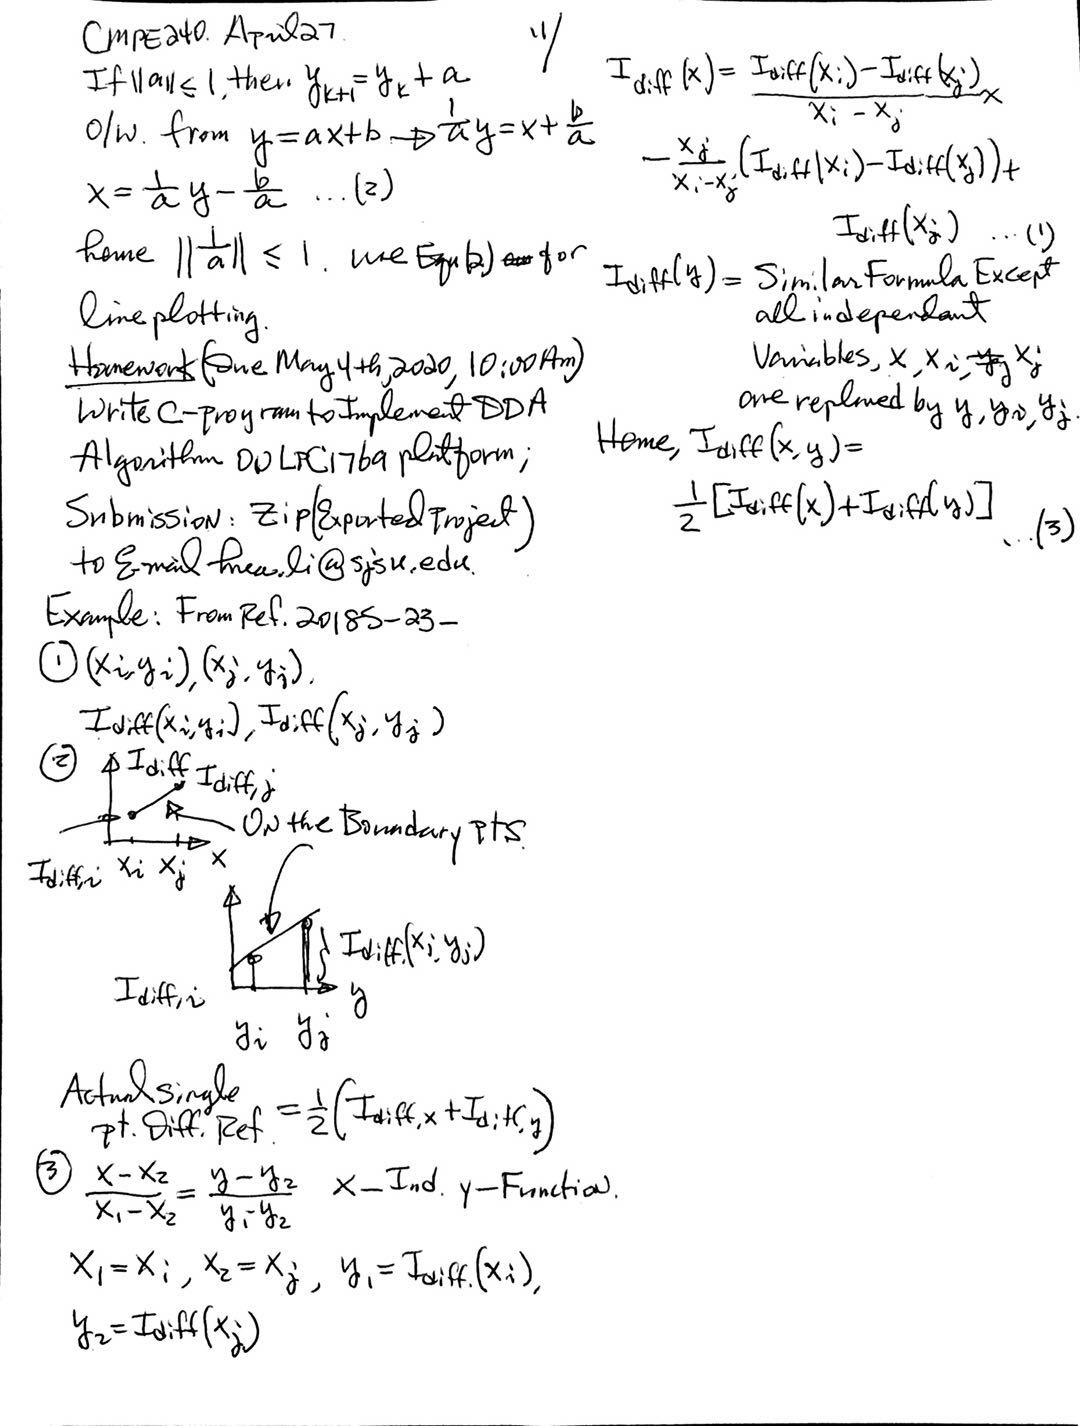 CMPE240. April 27.
11/
If ||a|| ≤ 1, then y_{k+1} = y_k + a
O/W. from y = ax+b → 1/a y = x + b/a
x = 1/a y - b/a ...(2)
hence ||1/a|| ≤ 1. use Equ(2) for
line plotting.
Homework (Due May 4th, 2020, 10:00 Am)
Write C-program to Implement DDA
Algorithm ON LPC1769 platform;
Submission: Zip (Exported Project)
to E-mail @sjsu.edu.
Example: From Ref. 2018S-23-
① (xi, yi), (xj, yj).
Idiff(xi, yi), Idiff(xj, yj)
② Idiff Idiff,j
ON the Boundary pts.
Idiff,i xi xj x
Idiff(xj, yj)
Idiff,i y
yi yj
Actual single
pt. Diff. Ref. = 1/2 (Idiff,x + Idiff,y)
③ (x-x2)/(x1-x2) = (y-y2)/(y1-y2) x-Ind. y-Function.
x1 = xi, x2 = xj, y1 = Idiff.(xi),
y2 = Idiff(xj)
Idiff(x) = (Idiff(xi) - Idiff(xj))/(xi - xj) x
- xj/(xi-xj) (Idiff(xi) - Idiff(xj)) +
Idiff(xj) ...(1)
Idiff(y) = Similar Formula Except
all independant
Variables, x, xi, xj
are replaced by y, yi, yj.
Hence, Idiff(x,y) =
1/2 [Idiff(x) + Idiff(y)] ...(3)